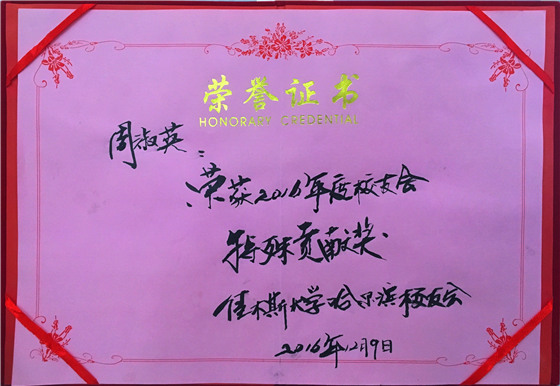 荣誉证书
HONORARY CREDENTIAL
周淑英：
荣获2016年度校友会
特殊贡献奖
佳木斯大学哈尔滨校友会
2016年12月9日